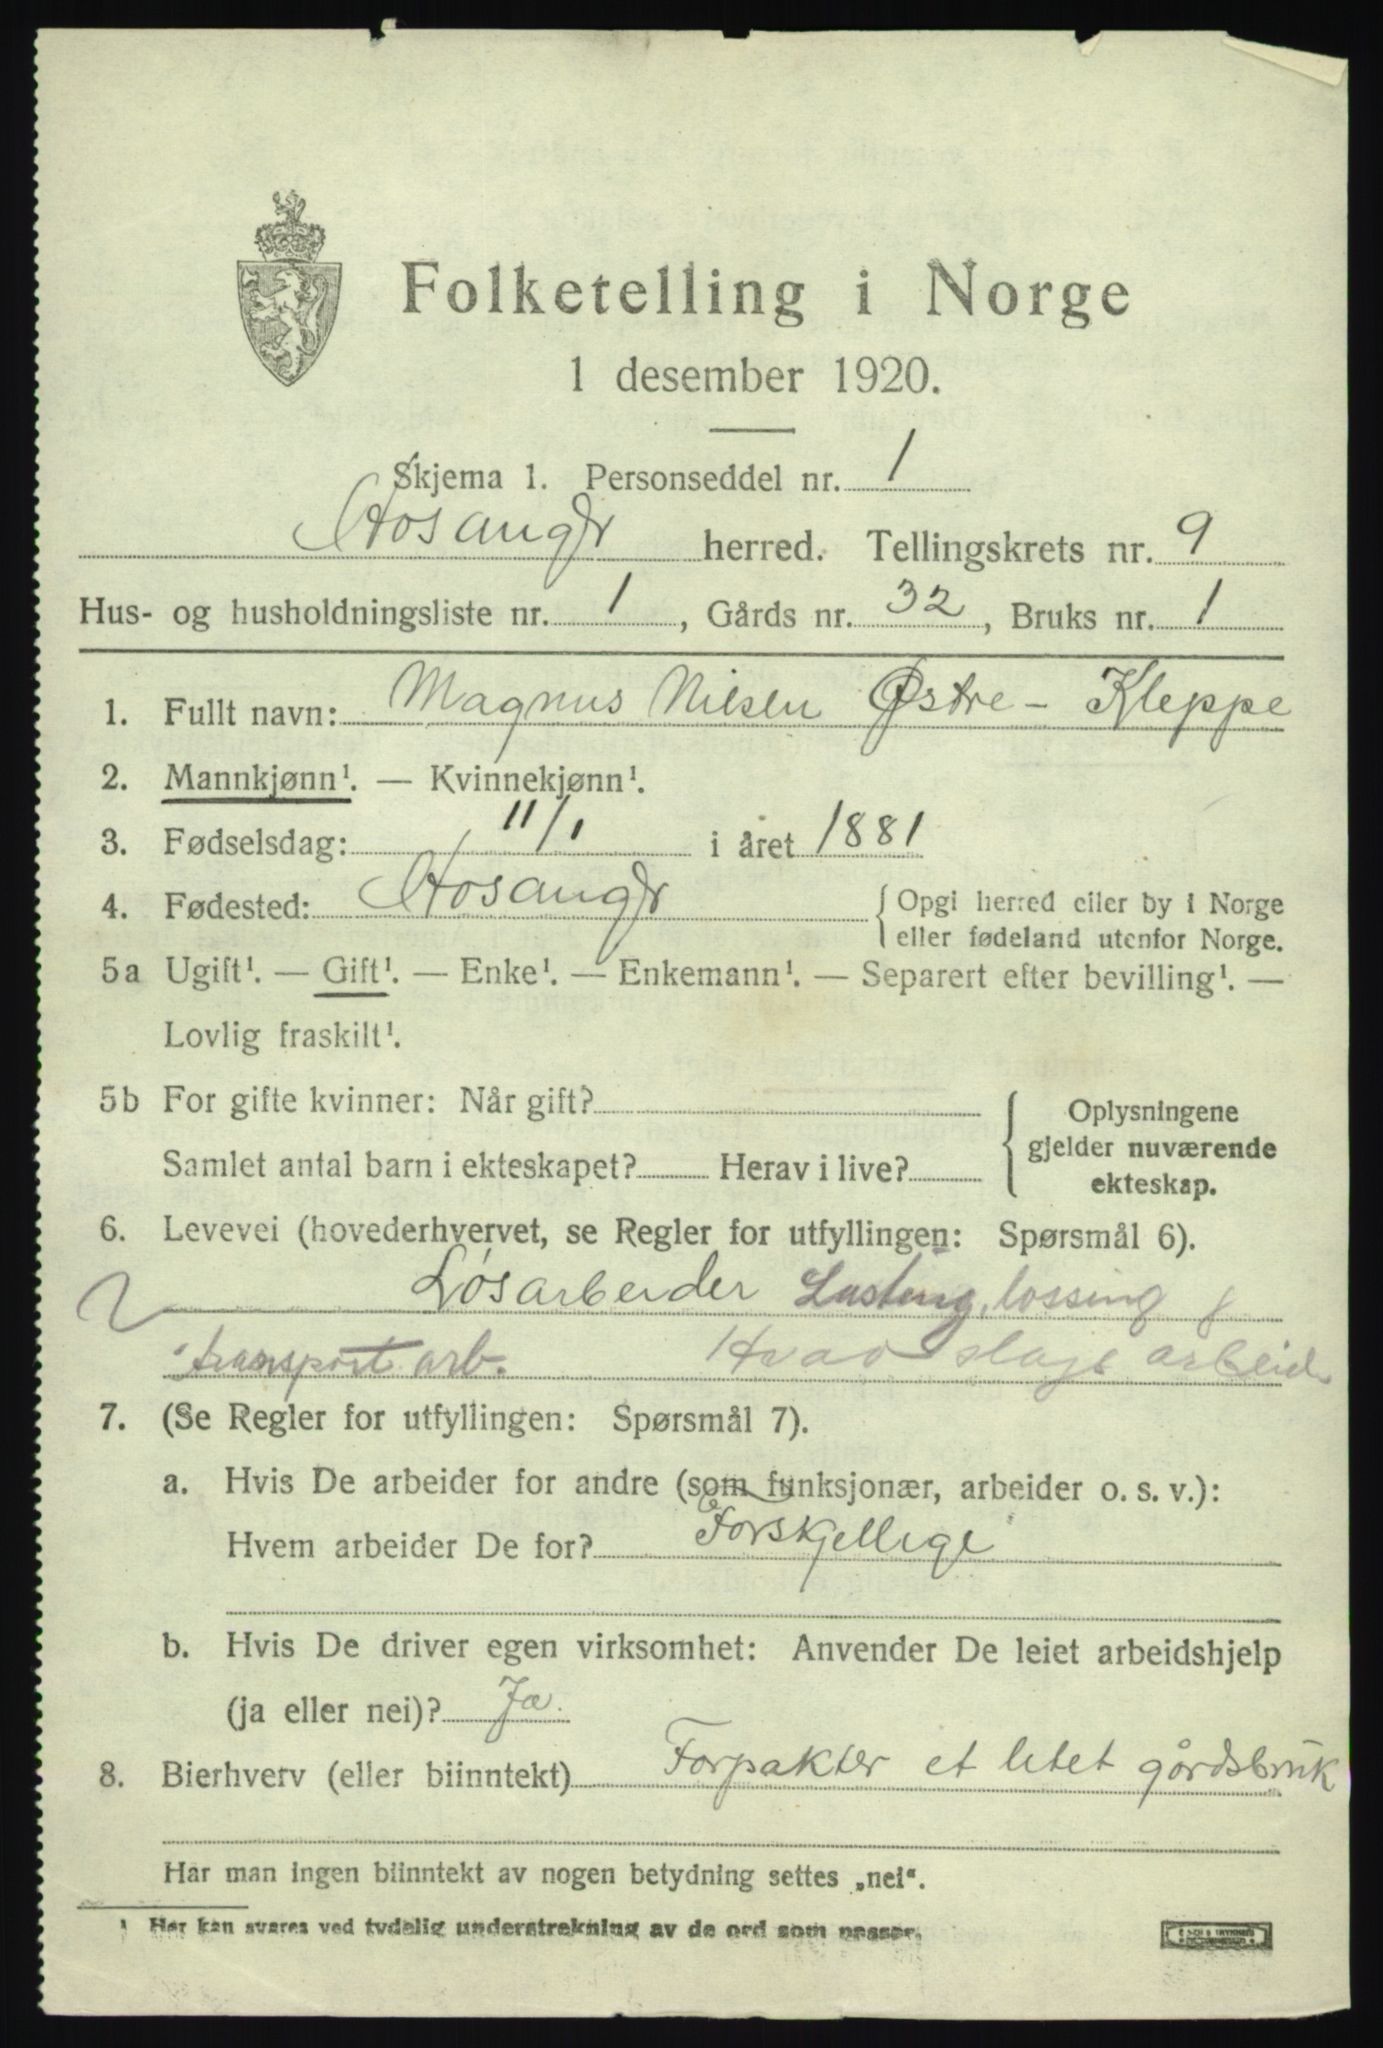 Folketelling i Norge
1 desember 1920.
Skjema 1. Personseddel nr. 1
Hosangr herred. Tellingskrets nr. 9
Hus- og husholdningsliste nr. 1, Gårds nr. 32, Bruks nr. 1
1. Fullt navn: Magnus Nilsen Østre - Kleppe
2. Mannkjønn¹. — Kvinnekjønn¹.
3. Fødselsdag: 11/1 i året 1881
4. Fødested: Hosangr { Opgi herred eller by i Norge
eller fødeland utenfor Norge.
5a Ugift¹. — Gift¹. — Enke¹. — Enkemann¹. — Separert efter bevilling¹. —
Lovlig fraskilt¹.
5b For gifte kvinner: Når gift?
Samlet antal barn i ekteskapet? Herav i live?
Oplysningene
gjelder nuværende
ekteskap.
6. Levevei (hovederhvervet, se Regler for utfyllingen: Spørsmål 6).
Løsarbeider Lasting, lossing &
transport arb. Hvad slags arbeid
7. (Se Regler for utfyllingen: Spørsmål 7).
a. Hvis De arbeider for andre (som funksjonær, arbeider o. s. v.):
Hvem arbeider De for? Forskjellige
b. Hvis De driver egen virksomhet: Anvender De leiet arbeidshjelp
(ja eller nei)? Ja.
8. Bierhverv (eller biinntekt) Forpakter et litet gårdsbruk
Har man ingen biinntekt av nogen betydning settes „nei“.
¹ Her kan svares ved tydelig understrekning av de ord som passer.